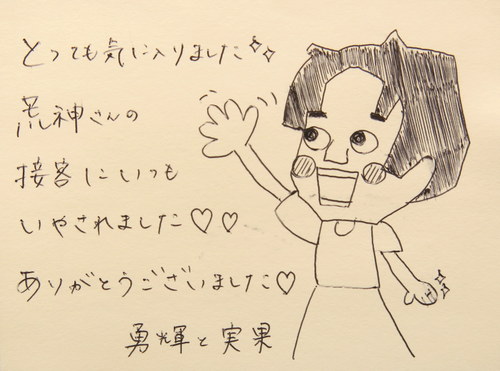 とっても気に入りました
荒神さんの
接客にいつも
いやされました♡♡
ありがとうございました♡
勇輝と実果